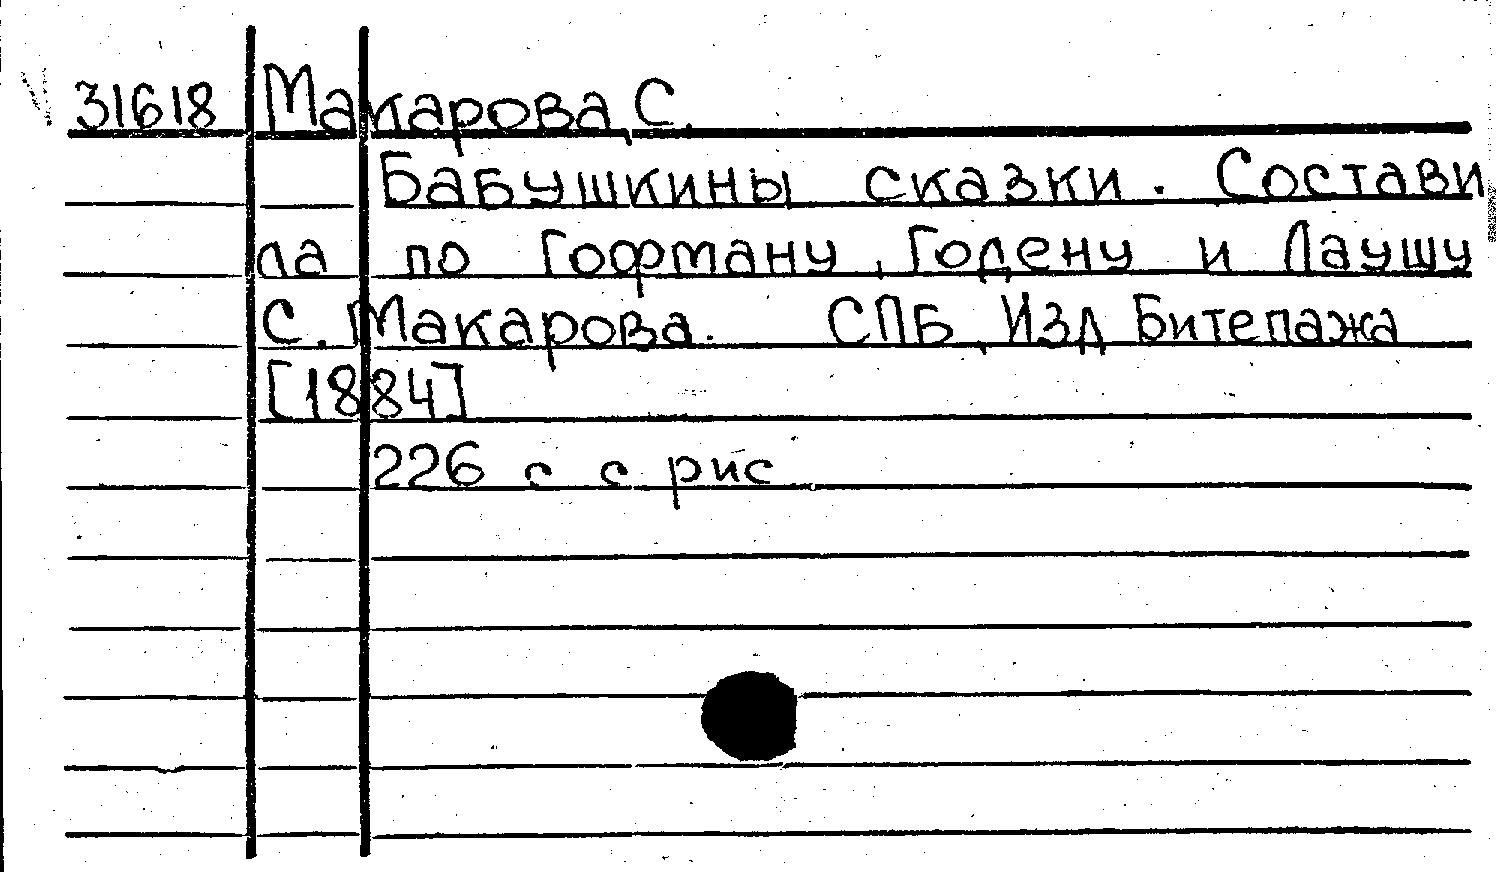 31618 Макарова, С.
Бабушкины сказки. Состави
ла по Гофману, Годену и Лаушу
С. Макарова. СПБ, Изд Битепажа
[1884]
226 с с рис